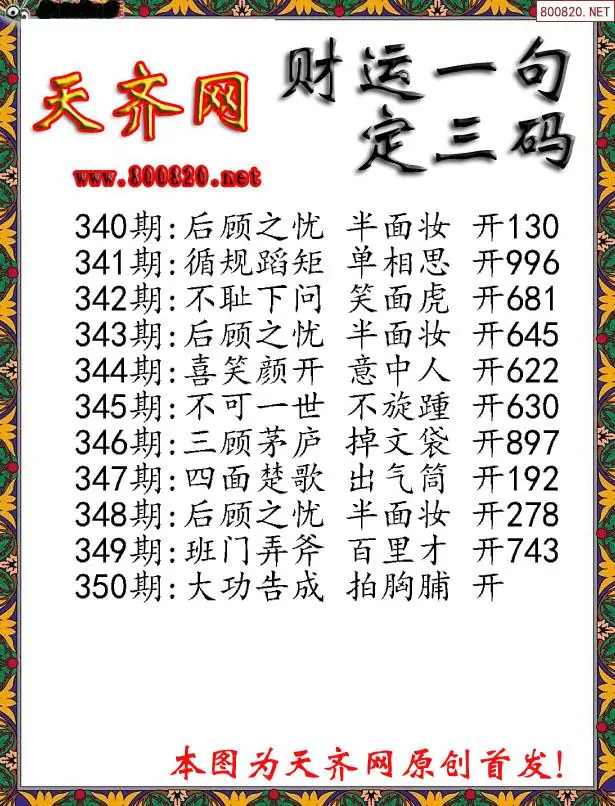 800820.NET
天齐网
财运一句
定三码
www.800820.net
340期:后顾之忧 半面妆 开130
341期:循规蹈矩 单相思 开996
342期:不耻下问 笑面虎 开681
343期:后顾之忧 半面妆 开645
344期:喜笑颜开 意中人 开622
345期:不可一世 不旋踵 开630
346期:三顾茅庐 掉文袋 开897
347期:四面楚歌 出气筒 开192
348期:后顾之忧 半面妆 开278
349期:班门弄斧 百里才 开743
350期:大功告成 拍胸脯 开
本图为天齐网原创首发!